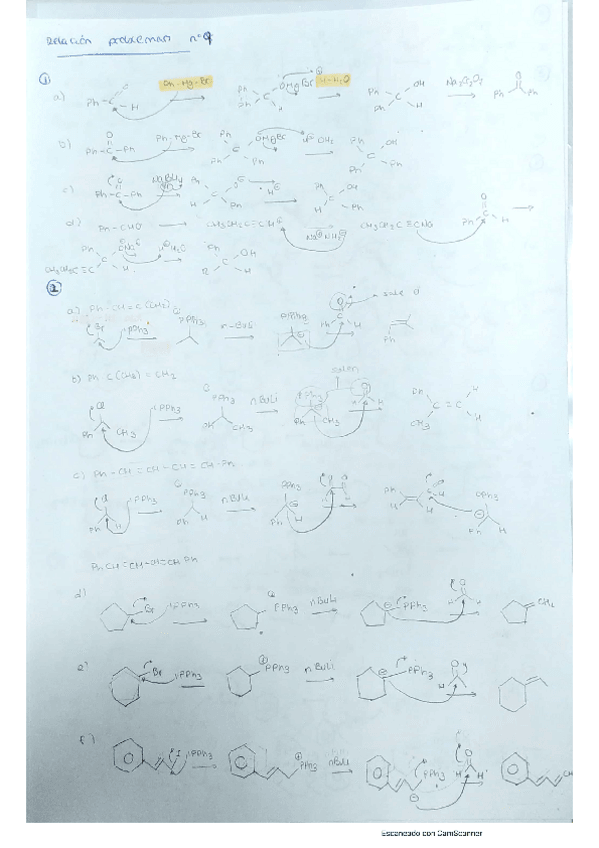 Relación problemas nº 9
①
a) Ph C O H Ph-Mg-Br Ph C OMgBr H H-H₂O Ph C OH H Ph Na₂Cr₂O₇ O Ph Ph
b) O Ph-C-Ph Ph-Mg-Br Ph C OMgBr Ph Ph OH₂ Ph C OH Ph Ph
c) O Ph-C-Ph NaBH₄ Ph C O H Ph H Ph C OH H Ph
d) Ph-CHO CH₃CH₂C≡C-H CH₃CH₂C≡CNa O Ph C H
NaNH₂
Ph C H CH₃CH₂C≡C Ph C OH R H
②
a) Ph-CH=C(CH₃)₂
Br PPh₃ PPh₃ n-BuLi PPh₃ O Ph C H sale Ph
b) Ph C(CH₃)=CH₂
salen
Cl PPh₃ Ph CH₃ PPh₃ Ph CH₃ nBuLi PPh₃ Ph CH₃ O H H Ph C=C H CH₃ H
c) Ph-CH=CH-CH=CH-Ph
Cl PPh₃ Ph H PPh₃ Ph H nBuLi PPh₃ Ph H O O Ph H H PPh₃ Ph H
PhCH=CH-CH=CH Ph
d) Br PPh₃ PPh₃ nBuLi PPh₃ O H CH₂
e) Br PPh₃ PPh₃ nBuLi PPh₃ O H
f) I PPh₃ PPh₃ nBuLi PPh₃ O H H
Escaneado con CamScanner